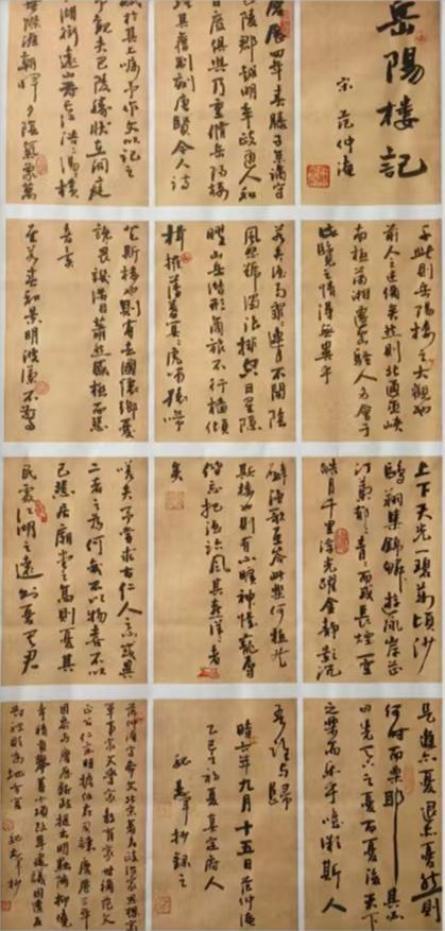 岳陽樓記
宋 范仲淹
慶曆四年春滕子京謫守
巴陵郡越明年政通人和
百廢俱興乃重修岳陽樓
增其舊制刻唐賢今人詩
賦於其上囑予作文以記之
予觀夫巴陵勝狀在洞庭
湖銜遠山吞長江浩浩湯湯橫
無際涯朝暉夕陰氣象萬
千此則岳陽樓之大觀也
前人之述備矣然則北通巫峽
南極瀟湘遷客騷人多會于
此覽物之情得無異乎
若夫淫雨霏霏連月不開陰
風怒號濁浪排空日星隱
曜山岳潛形商旅不行檣傾
楫摧薄暮冥冥虎嘯猿啼
登斯樓也則有去國懷鄉憂
讒畏譏滿目蕭然感極而悲
者矣
至若春和景明波瀾不驚
上下天光一碧萬頃沙
鷗翔集錦鱗游泳岸芷
汀蘭郁郁青青而或長煙一空
皓月千里浮光躍金靜影沉
璧漁歌互答此樂何極登
斯樓也則有心曠神怡寵辱
偕忘把酒臨風其喜洋洋者
矣
嗟夫予嘗求古仁人之心或異
二者之為何哉不以物喜不以
己悲居廟堂之高則憂其
民處江湖之遠則憂其君
是進亦憂退亦憂然則
何時而樂耶其必曰
先天下之憂而憂後天下
之樂而樂乎噫微斯人
吾誰與歸
時六年九月十五日范仲淹
乙巳年初夏
抄錄之